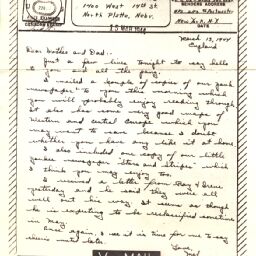 1400 West 14th St.
North Platte, Nebr.
SENDER'S ADDRESS
New York, N.Y.
March 13, 1944
England
Dear Mother and Dad:-
Just a few lines tonight to say hello
to you and all the gang.
I mailed a couple of copies of our yank
newspaper to you this morning which
you will probably enjoy reading though
it also has some very good maps of
Western and central Europe which you
may want to save because I doubt
whether you have any like it at home.
I also included one copy of our little
yankee newspaper "Stars and Stripes" which
I think you may enjoy too.
I received a letter from Ray & Irene
yesterday and he said they were all
well out his way. It seems as though
he is expecting to be reclassified sometime
in May.
Once again, I see it is time for me to say
cheerio until later.
Love,
V-MAIL